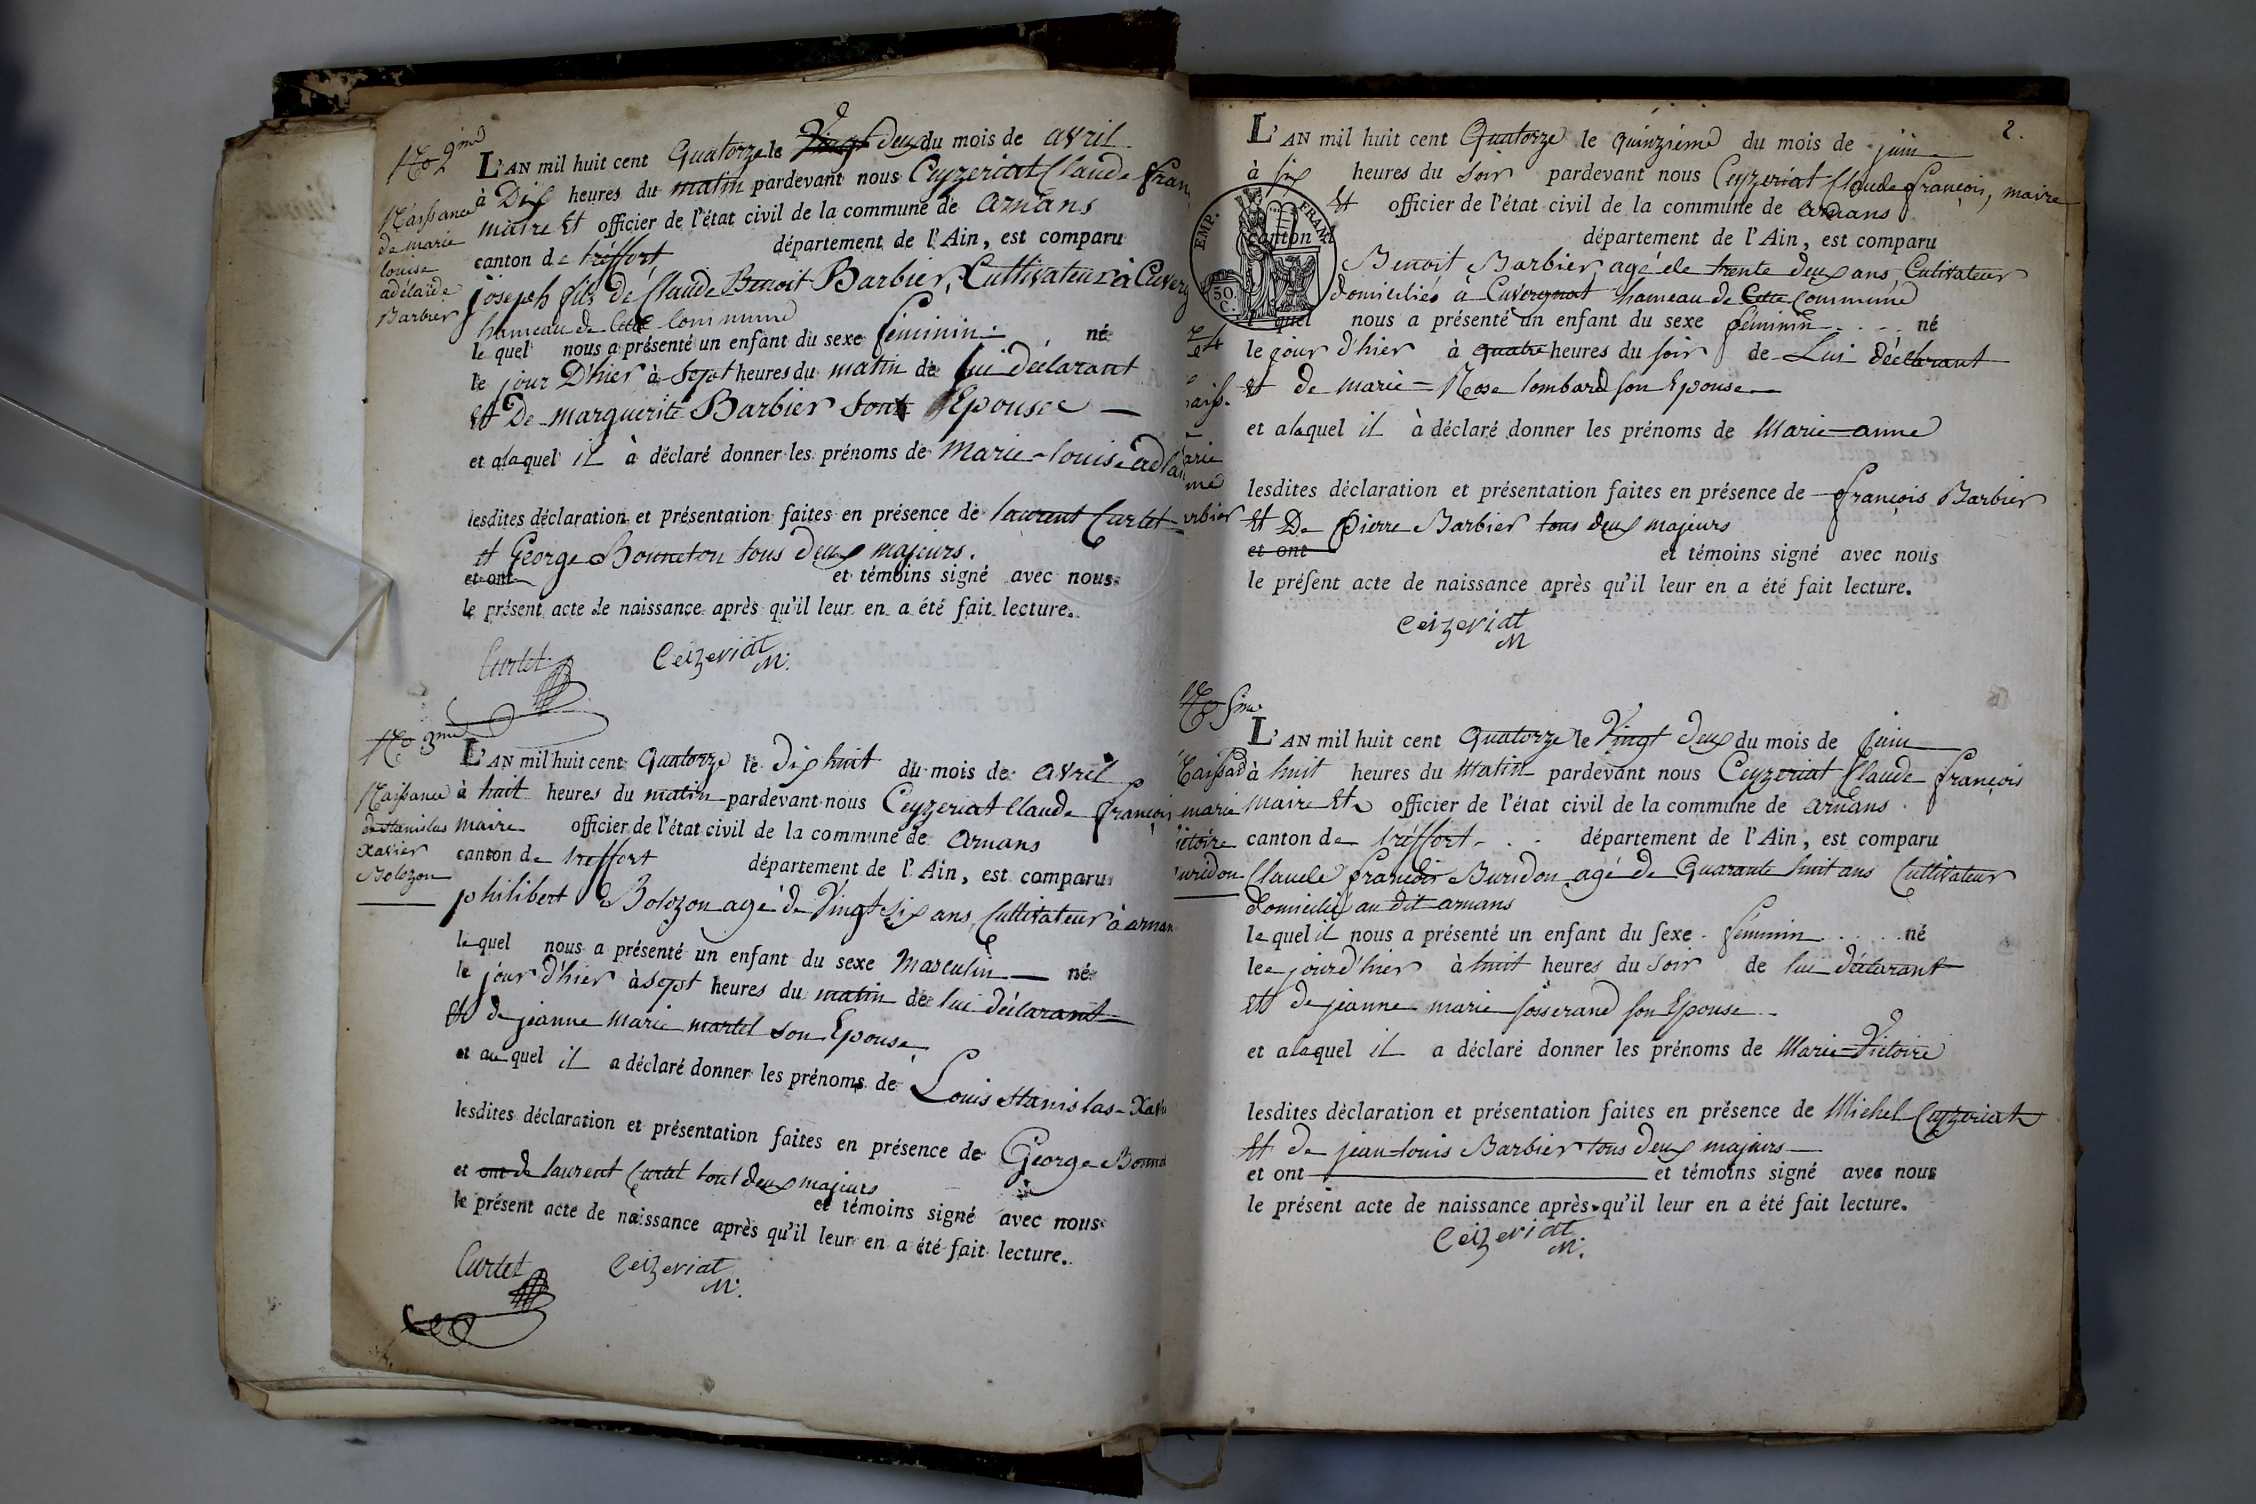 No 2me
L'AN mil huit cent Quatorze le Vingt deux du mois de avril
à Dix heures du matin pardevant nous Ceyzeriat Claude fran
Naissance
de marie
louise
adélaïde
Barbier
maire Et officier de l'état civil de la commune de arnans
canton de tréffort département de l'Ain, est comparu
joseph fils de Claude Benoit Barbier, Cultivateur à Cuverg
hameau de Cette Commune
le quel nous a présenté un enfant du sexe féminin né
le jour D'hier à Sept heures du matin de lui déclarant
Et De marguerite Barbier Son Epouse
et alaquel il à déclaré donner les prénoms de Marie-louise adélai
lesdites déclaration et présentation faites en présence de laurent Curtet
et George Bonneton tous deux majeurs.
et ont et témoins signé avec nous
le présent acte de naissance après qu'il leur en a été fait lecture.
Curtet Ceizeriat M.
No 3me
L'AN mil huit cent Quatorze le Dix huit du mois de avril
Naissance
de stanislas
Xavier
Bolozon
à huit heures du matin pardevant nous Ceyzeriat Claude françois
maire officier de l'état civil de la commune de arnans
canton de treffort département de l'Ain, est comparu
philibert Bolozon agé de Vingt Six ans, Cultivateur à arnan
le quel nous a présenté un enfant du sexe Masculin né
le jour d'hier à sept heures du matin de lui déclarant
Et de jeanne marie martel son Epouse
et au quel il a déclaré donner les prénoms de Louis stanislas-Xavi
lesdites déclaration et présentation faites en présence de George Bonne
et ont de laurent Curtet tout deux majeurs
et témoins signé avec nous
le présent acte de naissance après qu'il leur en a été fait lecture.
Curtet Ceizeriat M.
2.
L'AN mil huit cent Quatorze le quinzième du mois de juin
à six heures du Soir pardevant nous Ceyzeriat Claude françois, maire
Et officier de l'état civil de la commune de arnans
EMP. FRAN.
30. C.
canton d département de l'Ain, est comparu
Benoit Barbier agé de trente deux ans Cultivateur
domiciliés à Cuvergnat hameau de Cette Commune
l quel nous a présenté un enfant du sexe féminin né
le jour d'hier à quatre heures du soir de Lui déclarant
Et de marie-Rose lombard son Epouse
et alaquel il à déclaré donner les prénoms de Marie-anne
lesdites déclaration et présentation faites en présence de françois Barbier
Et De Pierre Barbier tous deux majeurs
et ont et témoins signé avec nous
le présent acte de naissance après qu'il leur en a été fait lecture.
Ceizeriat M
No 5me
L'AN mil huit cent Quatorze le Vingt deux du mois de juin
à huit heures du Matin pardevant nous Ceyzeriat Claude françois
marie
ictoire
uridon
Maire Et officier de l'état civil de la commune de arnans
canton de tréffort département de l'Ain, est comparu
Claude françois Buridon agé de Quarante huit ans Cultivateur
domicilié au dit arnans
le quel il nous a présenté un enfant du sexe féminin né
lee jour d'hier à huit heures du Soir de lui déclarant
Et de jeanne marie josserand son Epouse
et alaquel il a déclaré donner les prénoms de Marie-Victoire
lesdites déclaration et présentation faites en présence de Michel Ceyzeriat
Et de jean-louis Barbier tous deux majeurs
et ont et témoins signé avec nous
le présent acte de naissance après qu'il leur en a été fait lecture.
Ceizeriat M.